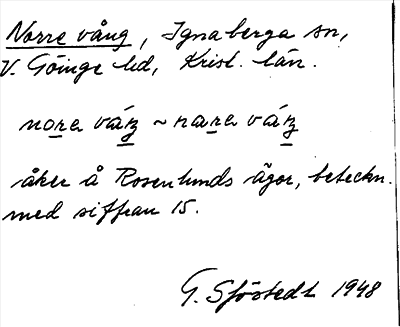 Norre vång, Ignaberga sn,
V. Göinge hd, Krist. län.
nora váŋ ~ nara váŋ
åker å Rosenlunds ägor, beteckn.
med siffran 15.
G. Sjöstedt 1948